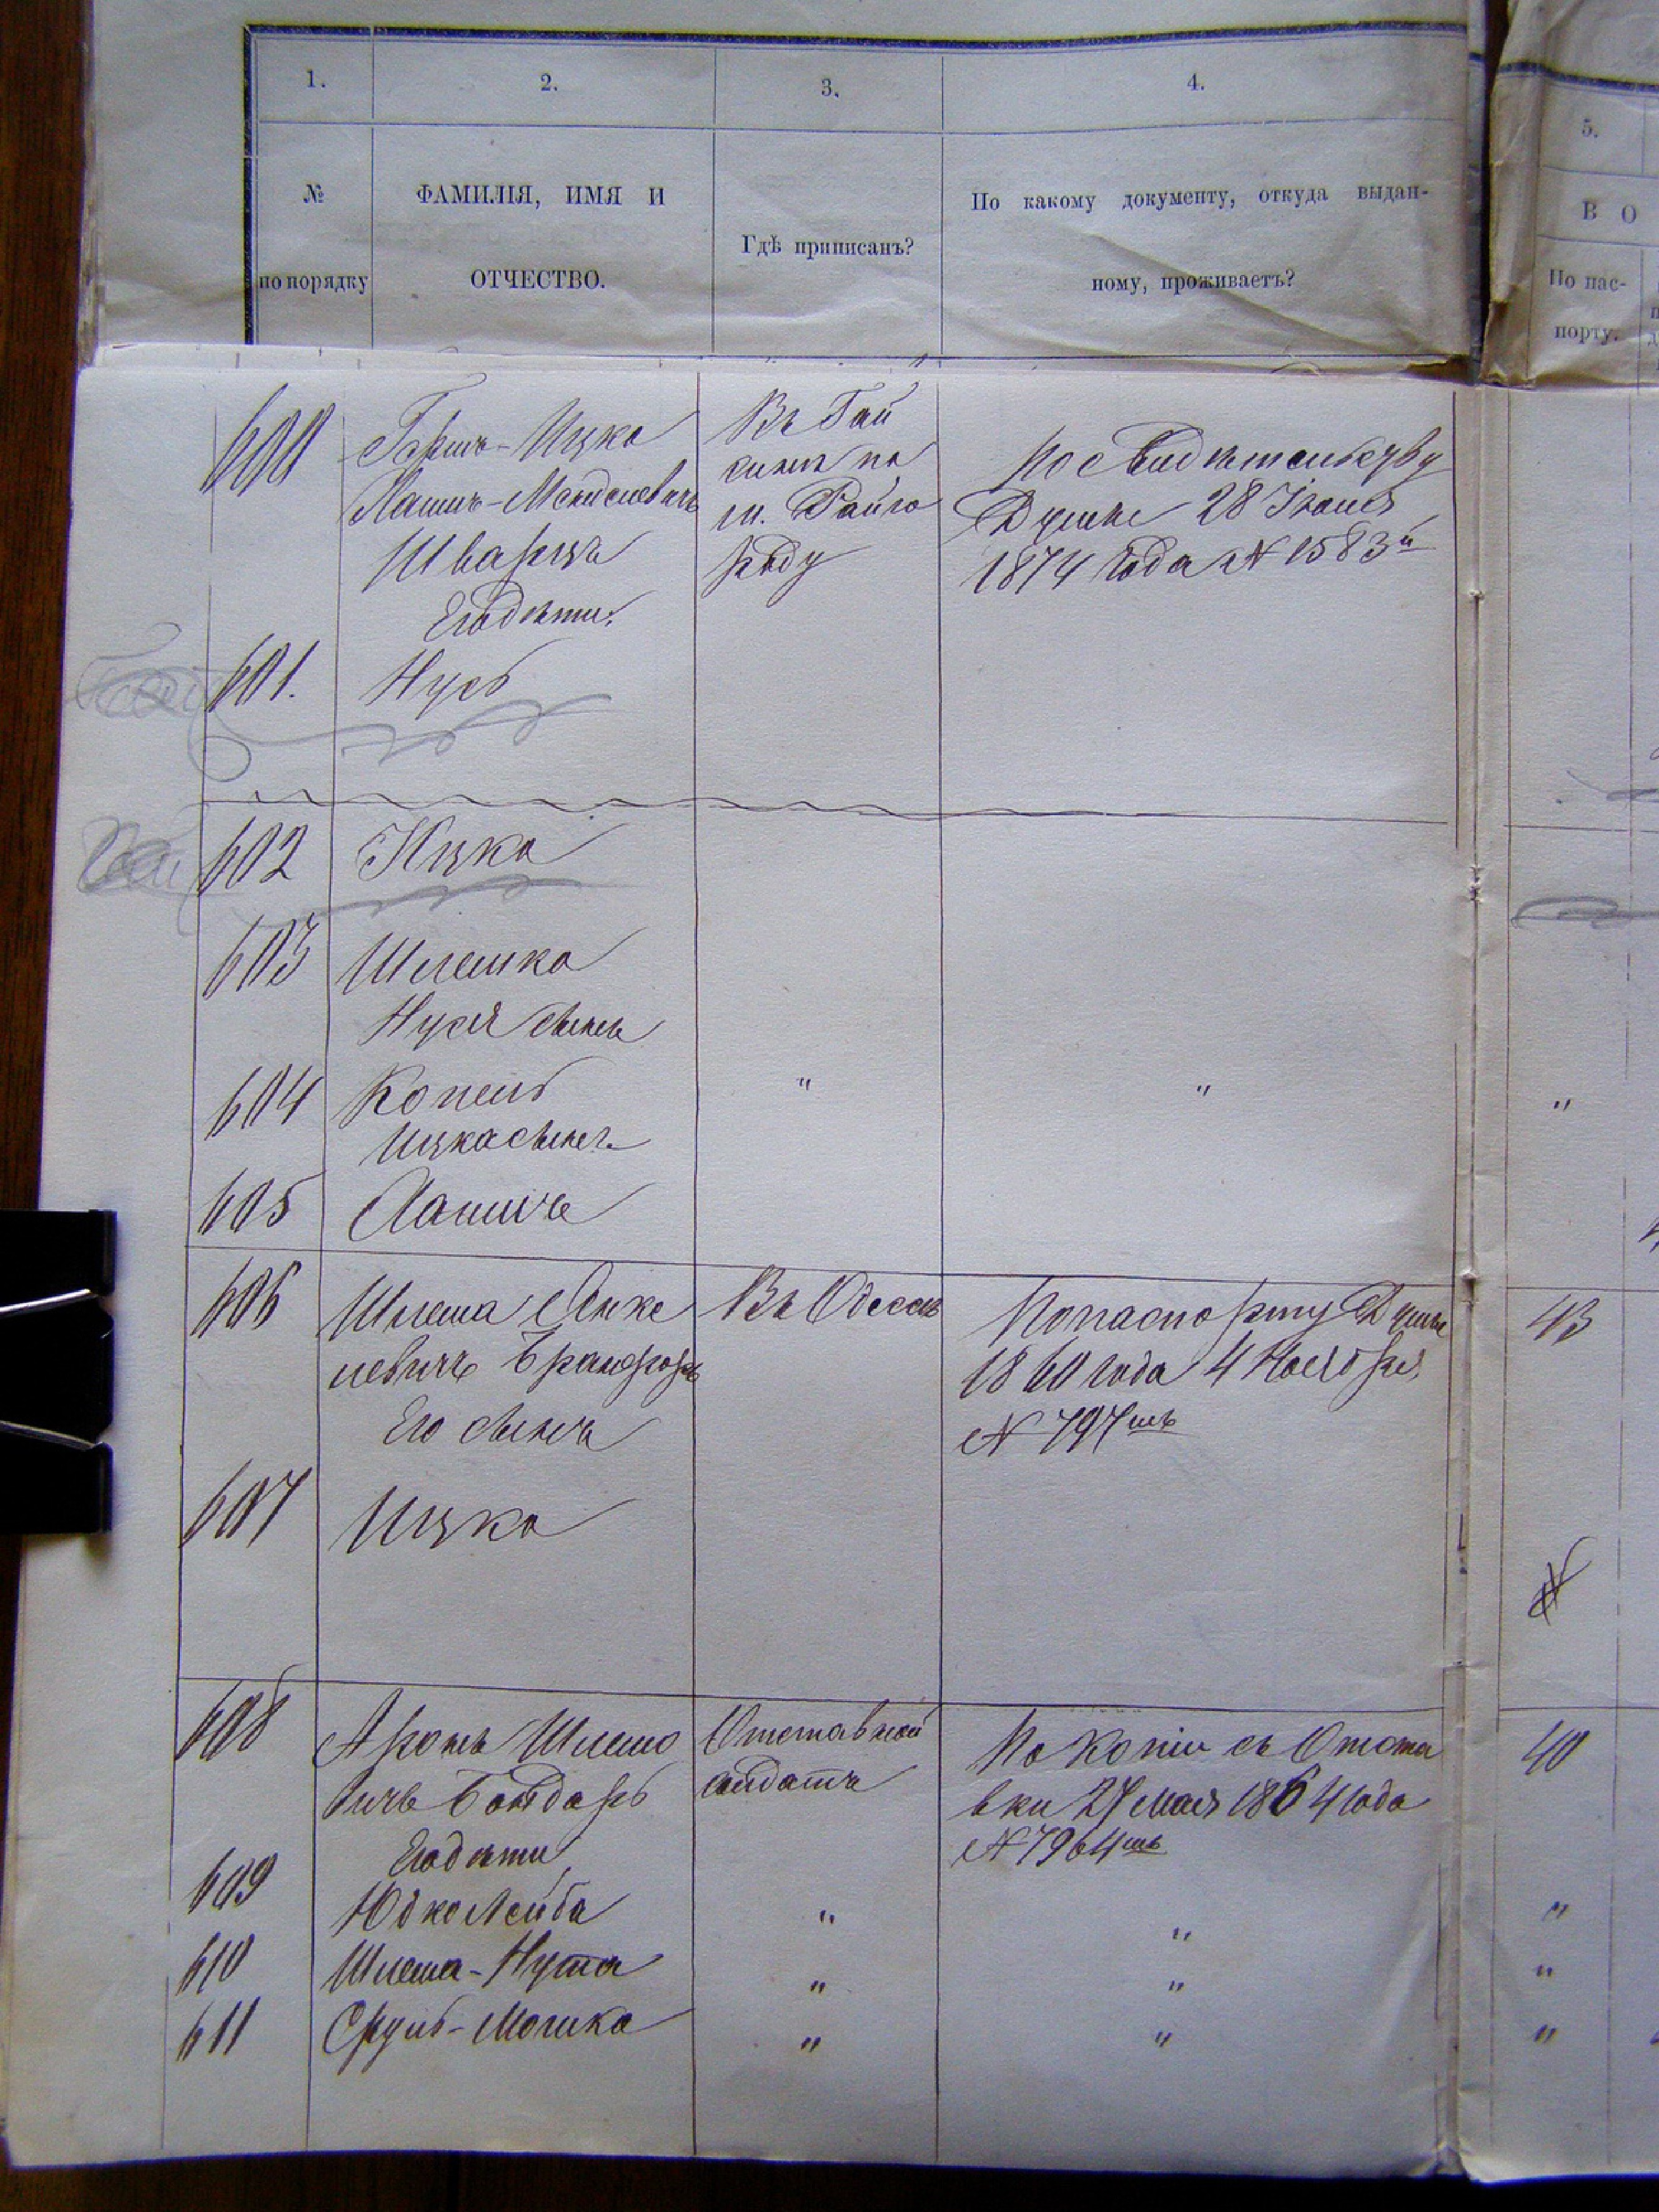 1. 2. 3. 4. 5.
№ по порядку
ФАМИЛІЯ, ИМЯ И
ОТЧЕСТВО.
Гдѣ приписанъ?
По какому документу, откуда выдан-
ному, проживаетъ?
В О
По пас-
порту.
600 Гершъ-Ицко
-Мендилевичъ
Шварцъ
Его дѣти:
Въ Гай
синѣ по
м. Райго
роду
По свидѣтельству
Думы 28 Іюня
1874 года № 1583й
601. Нусь
602 Ицко
603 Шлемко
Нуся сынъ
604 Копель " " "
Ицка сынъ
605
606 Шлема Янке
левичъ
Его сынъ
Въ Одессѣ
По паспорту Думы
1860 года 4 Ноября
№ 797мъ
43
607 Ицко
608 Аронъ Шлемо
вичъ Бондарь
Его дѣти
Отставной
солдатъ
По копіи съ Отста
вки 27 мая 1864 года
№ 7964мъ
40
609 Юдко Лейба " " "
610 Шлема-Нута " " "
611 Сруль-Мошко " " "